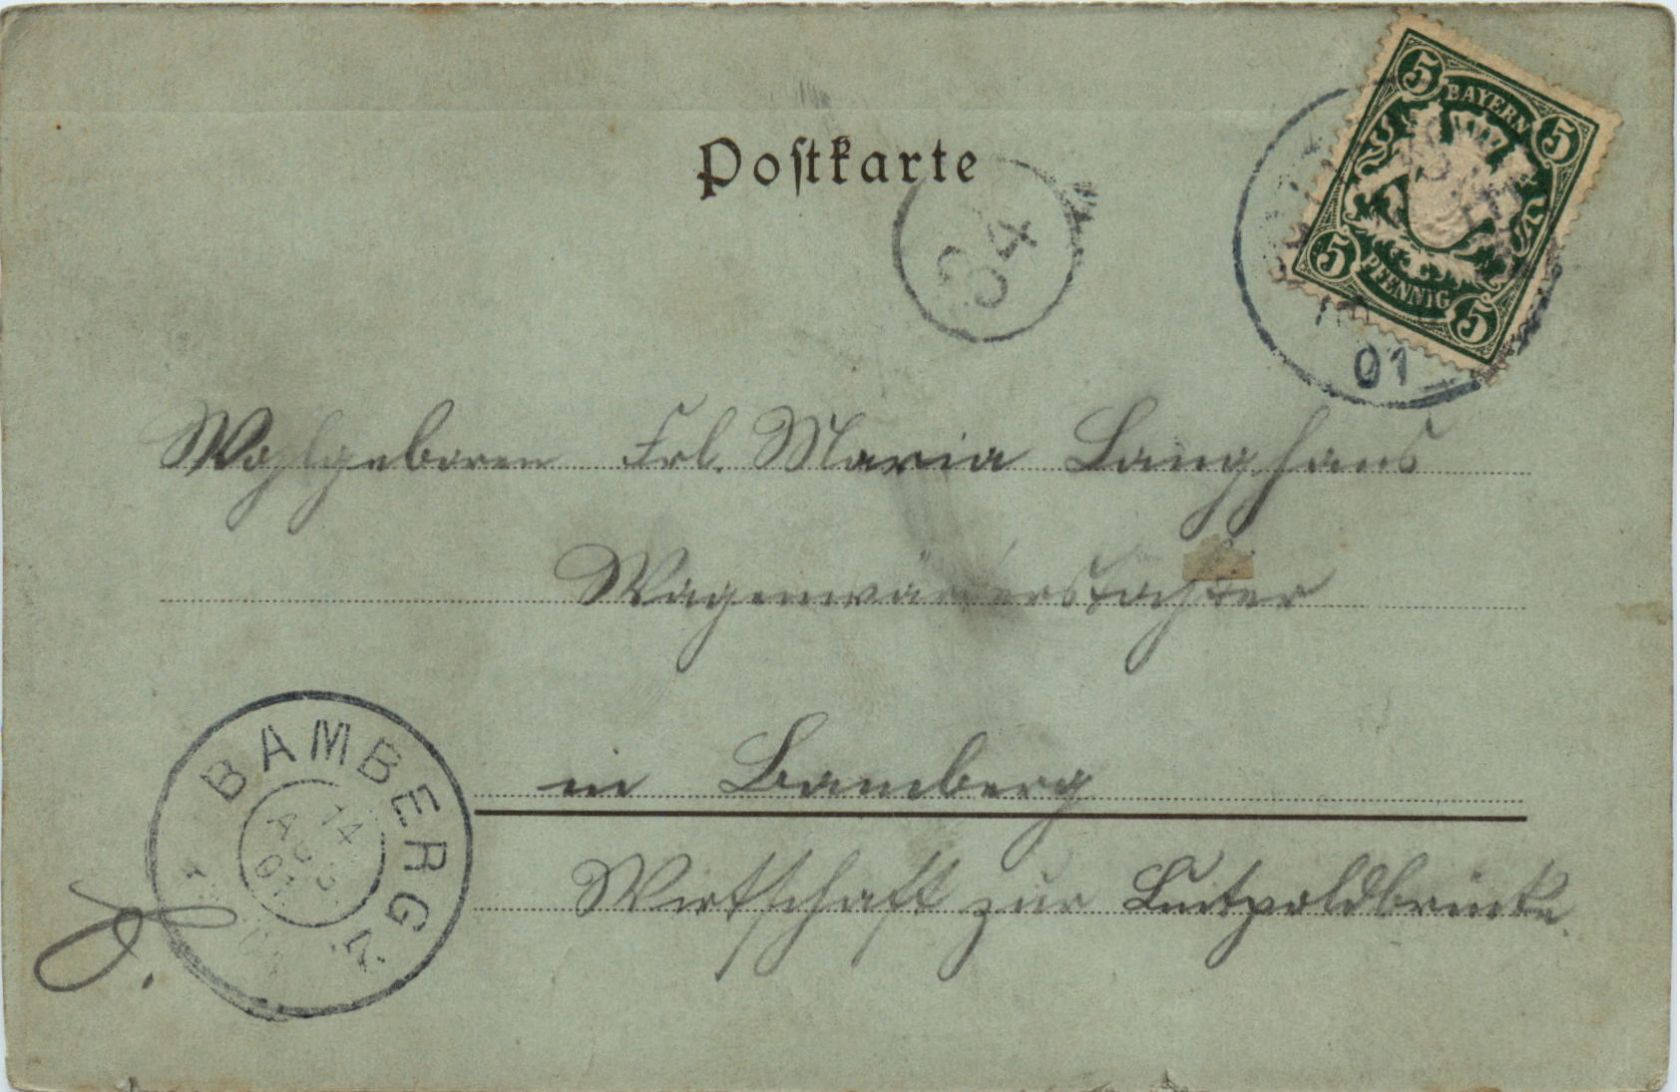 Postkarte
5 BAYERN 5
5 PFENNIG 5
01
64
Wohlgeboren Frl. Maria Langhans
Wagenwärterstochter
in Bamberg
Wirtschaft zur Luitpoldbrücke.
BAMBERG
14
AUG
01